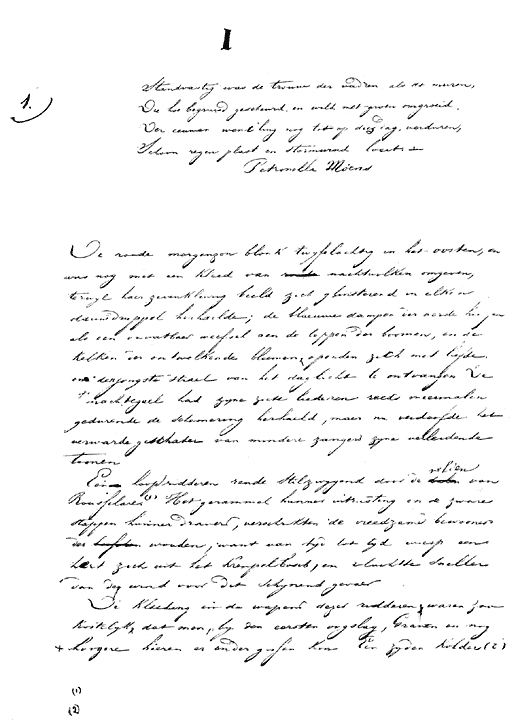 I
1.
Standvastig was de trouwe der vadren als de muren,
Die hoe begruisd gescheurd, en wild met groen omgroeid,
Der eeuwen wenteling nog tot op deez' dag verduren,
Schoon regen plast en stormwind loeit.
Petronella Moens
De roode morgenzon blonk twyfelachtig in het oosten, en
was nog met een kleed van nachtwolken omgeven,
terwyl haer zevenkleurig beeld zich glinsterend in elken
dauwdruppel herhaelde; de blauwe dampen der aerde hingen
als een onvatbaer weefsel aen de toppen der boomen, en de
kelken der ontwakende bloemen openden zich met liefde
om den jongste strael van het daglicht te ontvangen. De
nachtegael had zyne zoete liederen reeds meermalen
gedurende de schemering herhaeld, maer nu verdoofde het
verwarde geschater van mindere zangers zyne verleidende
toonen.
Een hoop ridderen reade stilzwygend door de velden van
Rousselaere (1) Het gerammel hunner uitrusting en de zware
stappen hunner dravers, verschrikten de vreedzame bewooners
der wouden, want van tyd tot tyd wierp een
hert zich uit het kreupelbosch, en vluchtte sneller
van den wind voor dit schynend gevaer
De kleeding en de wapens dezer ridderen waren zoo
kostelyk, dat men, by den eersten oogslag, Graven en nog
+ hoogere heeren er onder kon Een zyden kolder (2)
(1)
(2)